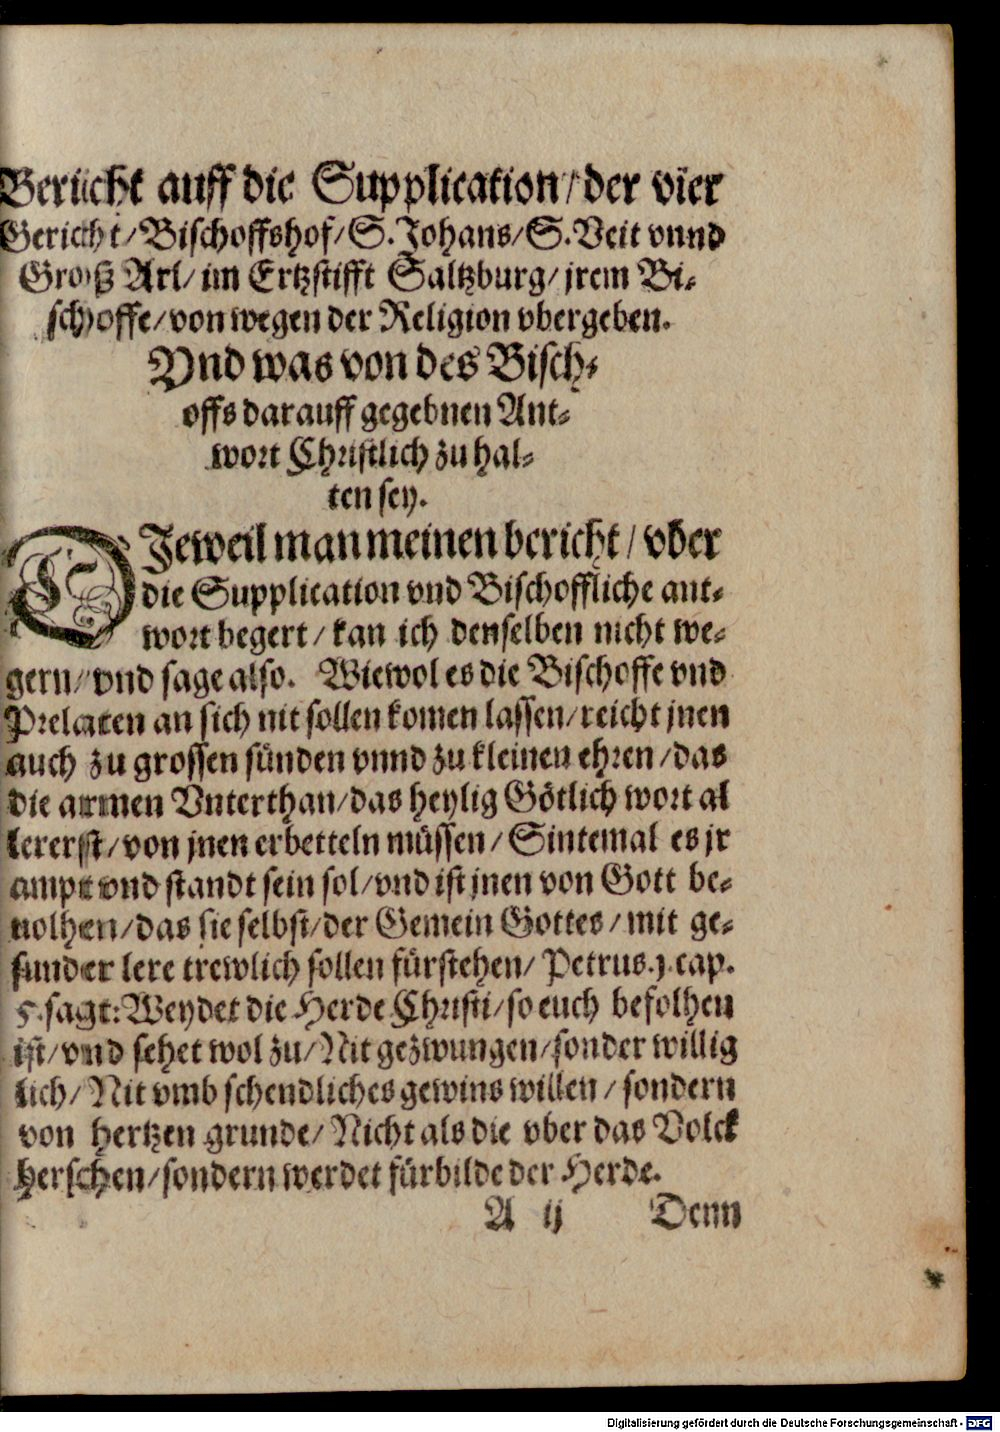 Bericht auff die Supplication/der vier
Gericht/Bischoffshof/S.Johans/S.Veit vnnd
Groß Arl/im Ertzstifft Saltzburg/jrem Bi-
schoffe/von wegen der Religion vbergeben.
Vnd was von des Bisch-
offs darauff gegebnen Ant-
wort Christlich zu hal-
ten sey.
DJeweil man meinen bericht/vber
die Supplication vnd Bischoffliche ant-
wort begert/kan ich denselben nicht we-
gern/vnd sage also. Wiewol es die Bischoffe vnd
Prelaten an sich nit sollen komen lassen/reicht jnen
auch zu grossen sünden vnnd zu kleinen ehren/das
die armen Vnterthan/das heylig Götlich wort al
lererst/von jnen erbetteln müssen/Sintemal es jr
ampt vnd standt sein sol/vnd ist jnen von Gott be-
uolhen/das sie selbst/der Gemein Gottes/mit ge-
sunder lere trewlich sollen fürstehen/Petrus.j.cap.
5.sagt:Weydet die Herde Christi/so euch befolhen
ist/vnd sehet wol zu/Nit gezwungen/sonder willig
lich/Nit vmb schendliches gewins willen/sondern
von hertzen grunde/Nicht als die vber das Volck
herschen/sondern werdet fürbilde der Herde.
A ij Denn
Digitalisierung gefördert durch die Deutsche Forschungsgemeinschaft - DFG